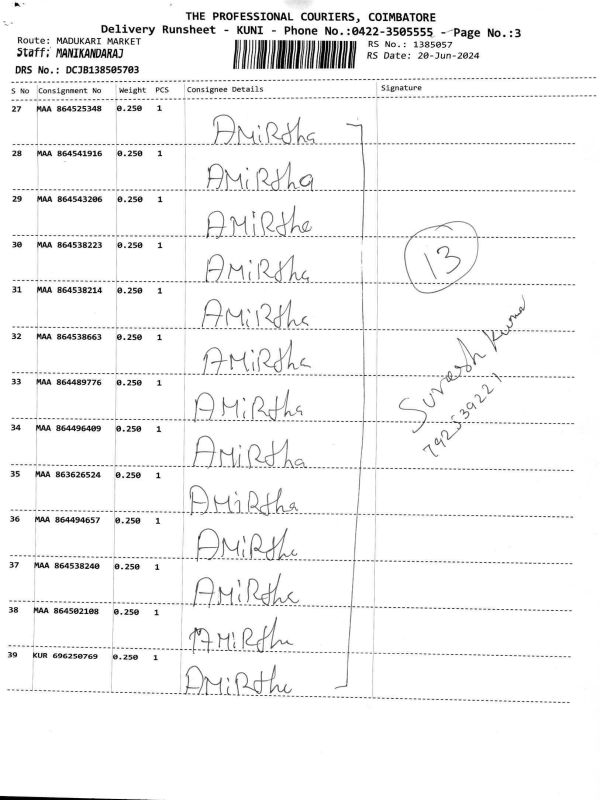 THE PROFESSIONAL COURIERS, COIMBATORE
Delivery Runsheet - KUNI - Phone No.:0422-3505555 - Page No.:3
Route: MADUKARI MARKET
RS No.: 1385057
Staff: MANIKANDARAJ
RS Date: 20-Jun-2024
DRS No.: DCJB138505703
S No Consignment No Weight PCS Consignee Details Signature
27 MAA 864525348 0.250 1
AMiRtha
28 MAA 864541916 0.250 1
AMiRtha
29 MAA 864543206 0.250 1
AMiRtha
30 MAA 864538223 0.250 1
AMiRtha
13
31 MAA 864538214 0.250 1
AMiRtha
32 MAA 864538663 0.250 1
AMiRtha
Suresh Kumar
33 MAA 864489776 0.250 1
AMiRtha
34 MAA 864496409 0.250 1
AMiRtha
35 MAA 863626524 0.250 1
AMiRtha
36 MAA 864494657 0.250 1
AMiRtha
37 MAA 864538240 0.250 1
AMiRtha
38 MAA 864502108 0.250 1
AMiRtha
39 KUR 696250769 0.250 1
AMiRtha